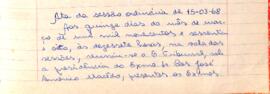 Ata da sessão ordinária de 15-03-68
Aos quinze dias do mês de mar-
ço de mil novecentos e sessenta
e oito, às dezessete horas, na sala das
sessões, reuniu-se o E. Tribunal, sob
a presidência do Exmo. Sr. Des. José
Antônio, presentes os Exmos.